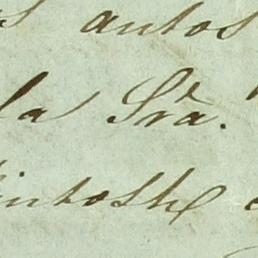 antos
la Sra.
intosh